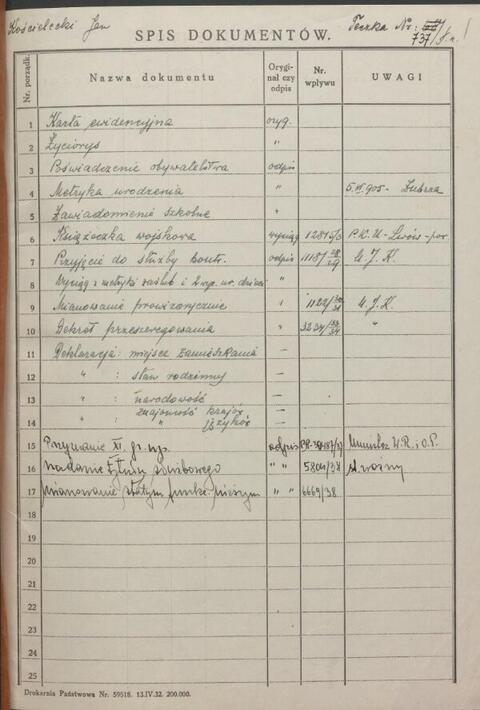 Kościelecki Jan
Teczka Nr:
737/
SPIS DOKUMENTÓW.
Nr. porządk.
Nazwa dokumentu
Orygi-
nał czy
odpis
Nr.
wpływu
UWAGI
1 Karta ewidencyjna oryg.
2 Życiorys "
3 Poświadczenie obywatelstwa odpis
4 Metryka urodzenia " 5.VI.905 -
5 Zawiadomienie szkolne "
6 Książeczka wojskowa wyciąg P.K.U - Lwów -
7 Przyjęcie do służby kontr. odpis 11187 U.J.K.
8 Wyciąg z metryki raślub i 2 wyc. ur. dzieci "
9 Mianowanie prowizorycznie " 1122 U.J.K.
10 Dekret przeszeregowania " 3234 "
11 Deklaracja: miejsce zamieszkania —
12 " : stan rodzinny —
13 " : narodowość —
14 " znajomość krajów —
" języków
15 Przyznanie XI gr. odpis W.R. i O.P.
16 nadanie tytułu służbowego " " 5804/38 st. woźny
17 mianowanie stałym funkc. niższym " " 6669/38
18
19
20
21
22
23
24
25
Drukarnia Państwowa Nr. 59518. 13.IV.32. 200.000.